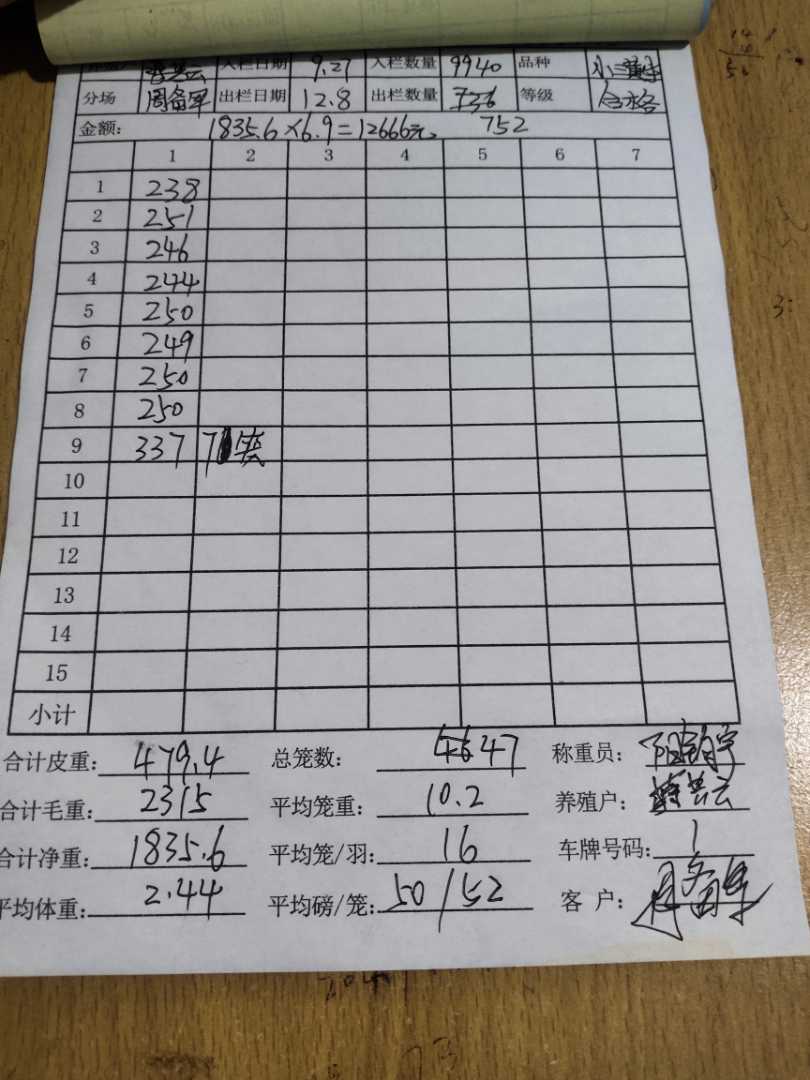 入栏日期 9.27 入栏数量 9940 品种
分场 周备军 出栏日期 12.8 出栏数量 736 等级 合格
金额: 1835.6×6.9=12666元。 752
1 2 3 4 5 6 7
1 238
2 251
3 246
4 244
5 250
6 249
7 250
8 250
9 337 7
10
11
12
13
14
15
小计
合计皮重: 479.4 总笼数: 46 47 称重员:
合计毛重: 2315 平均笼重: 10.2 养殖户:
合计净重: 1835.6 平均笼/羽: 16 车牌号码: 1
平均体重: 2.44 平均磅/笼: 50/52 客 户: 周备军